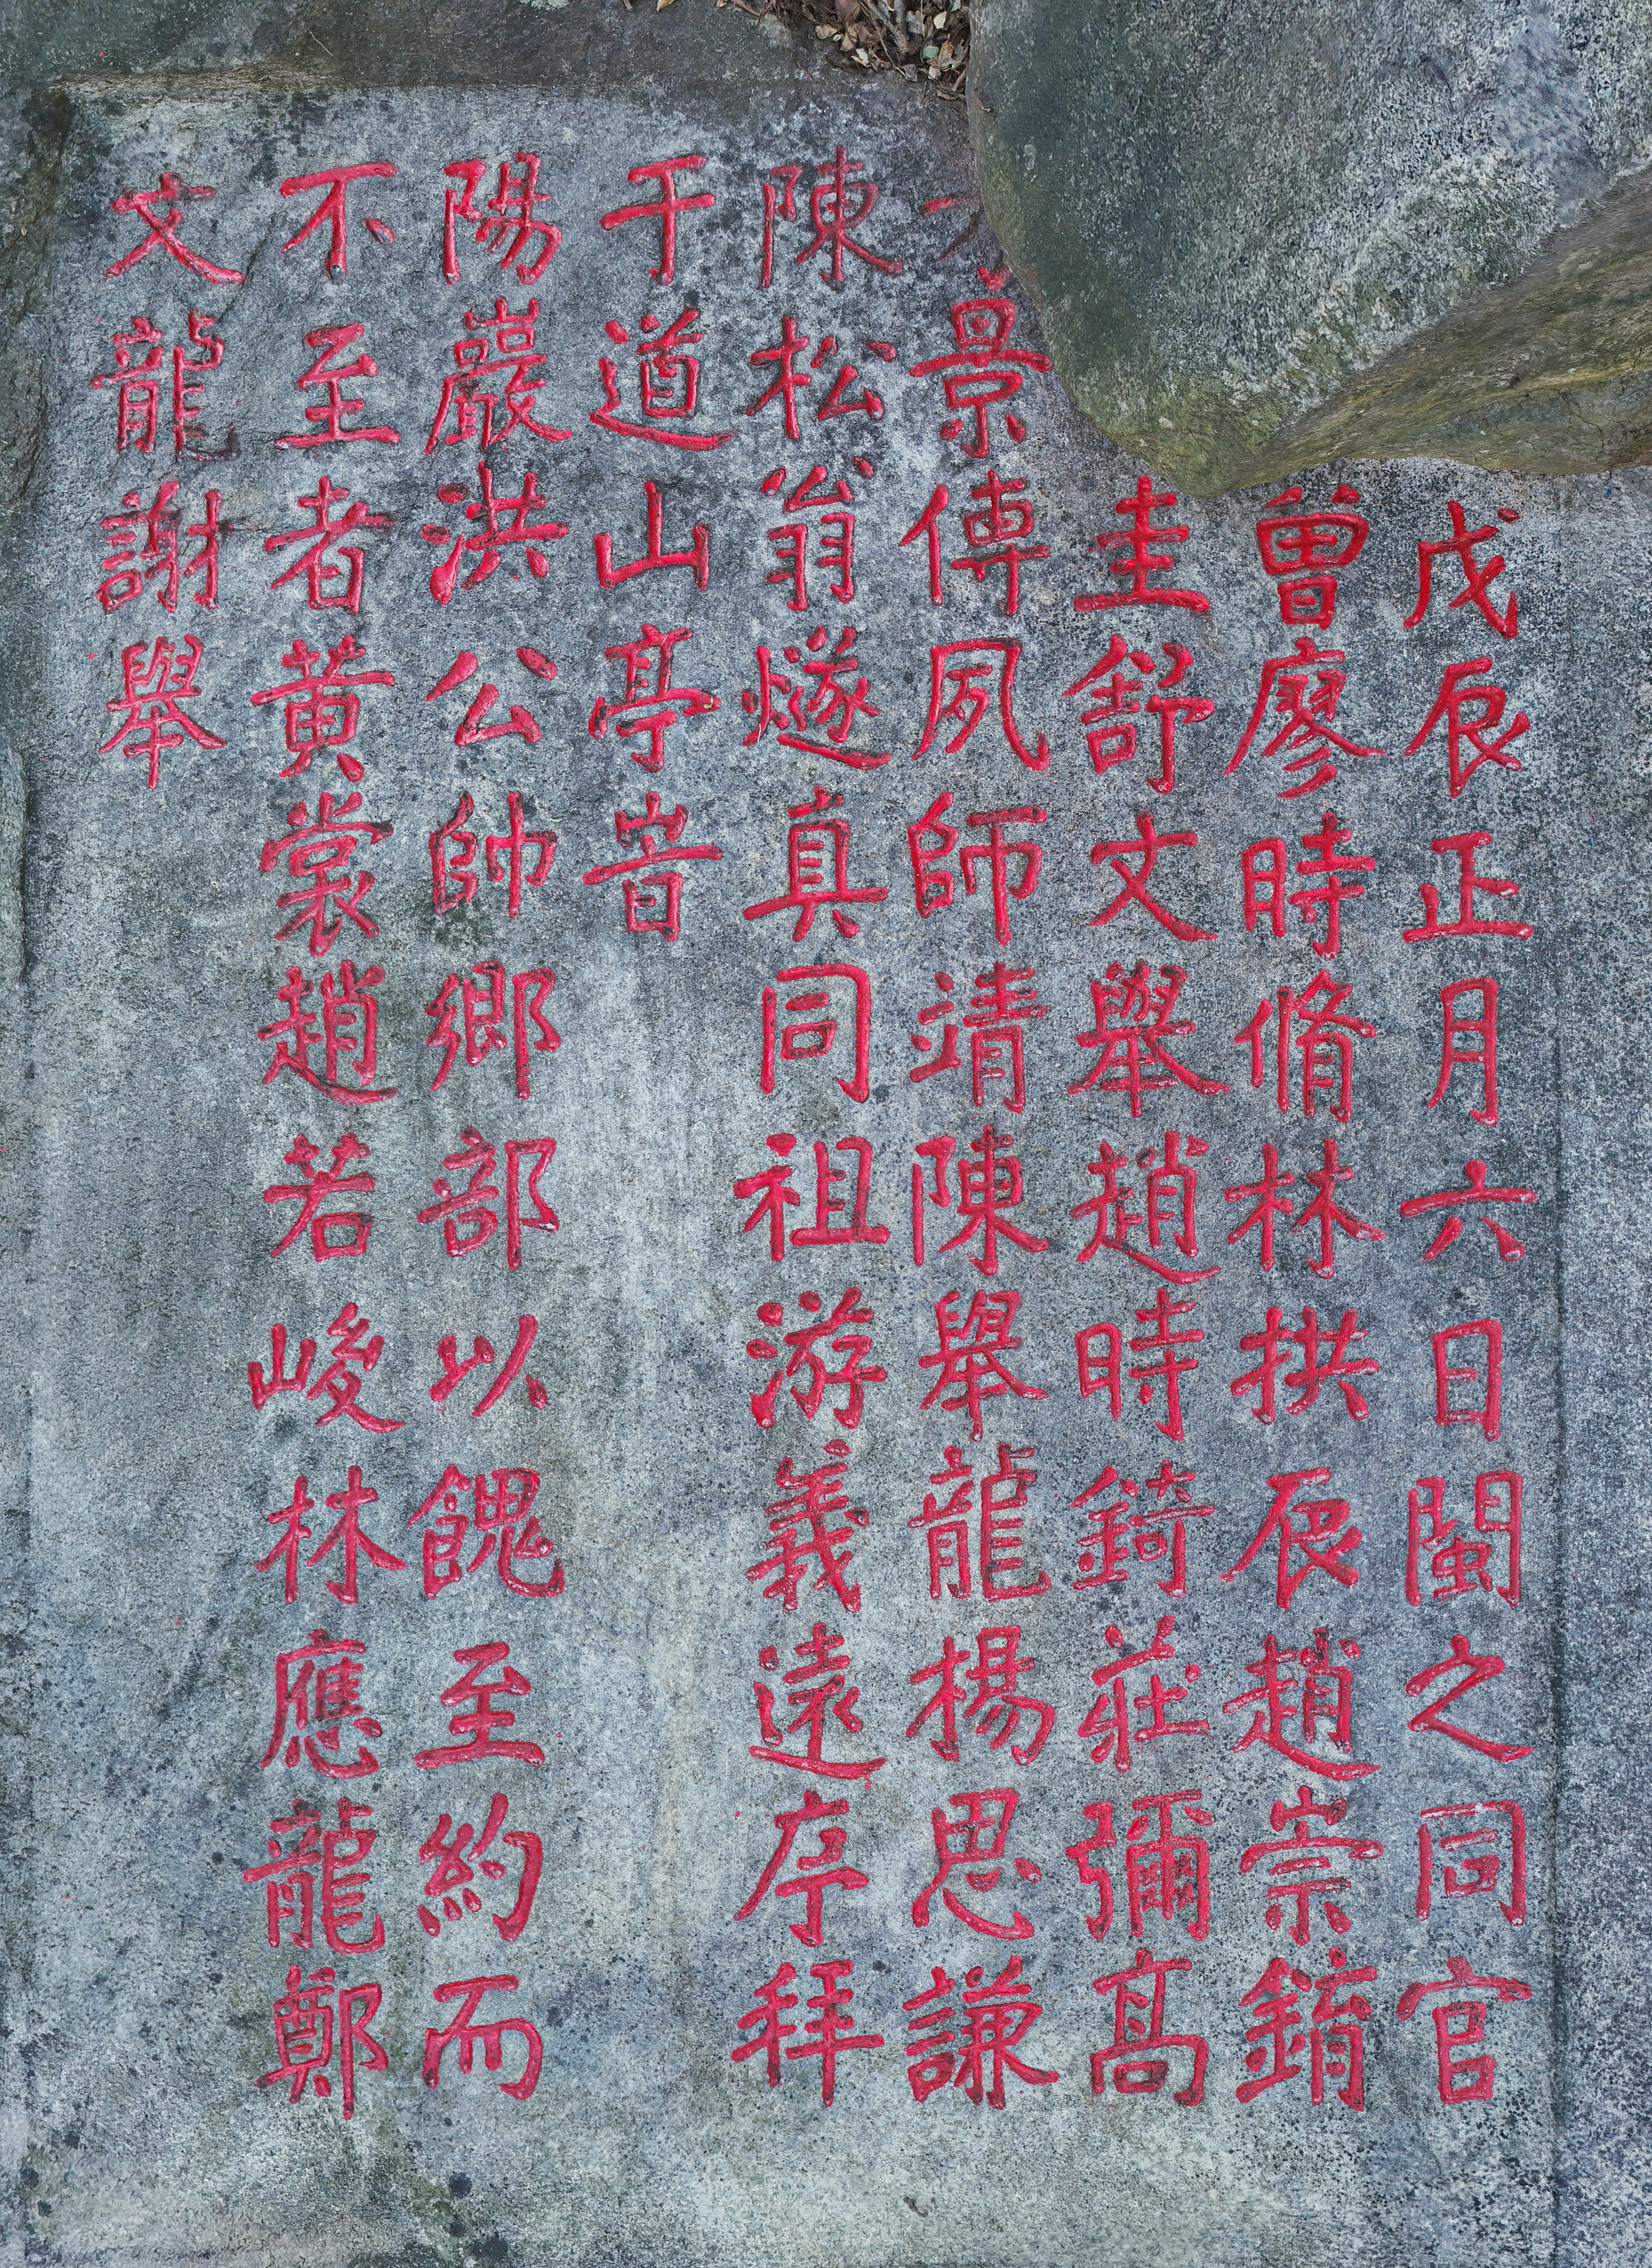 戊辰正月六日閩之同官
曾廖時脩林拱辰趙崇錥
圭舒文舉趙時錡莊彌高
景傅夙師靖陳舉龍楊思謙
陳松翁燧真同祖游義遠序拜
于道山亭旹
陽巖洪公帥鄉部以餽至約而
不至者黄裳趙若峻林應龍鄭
文龍謝舉